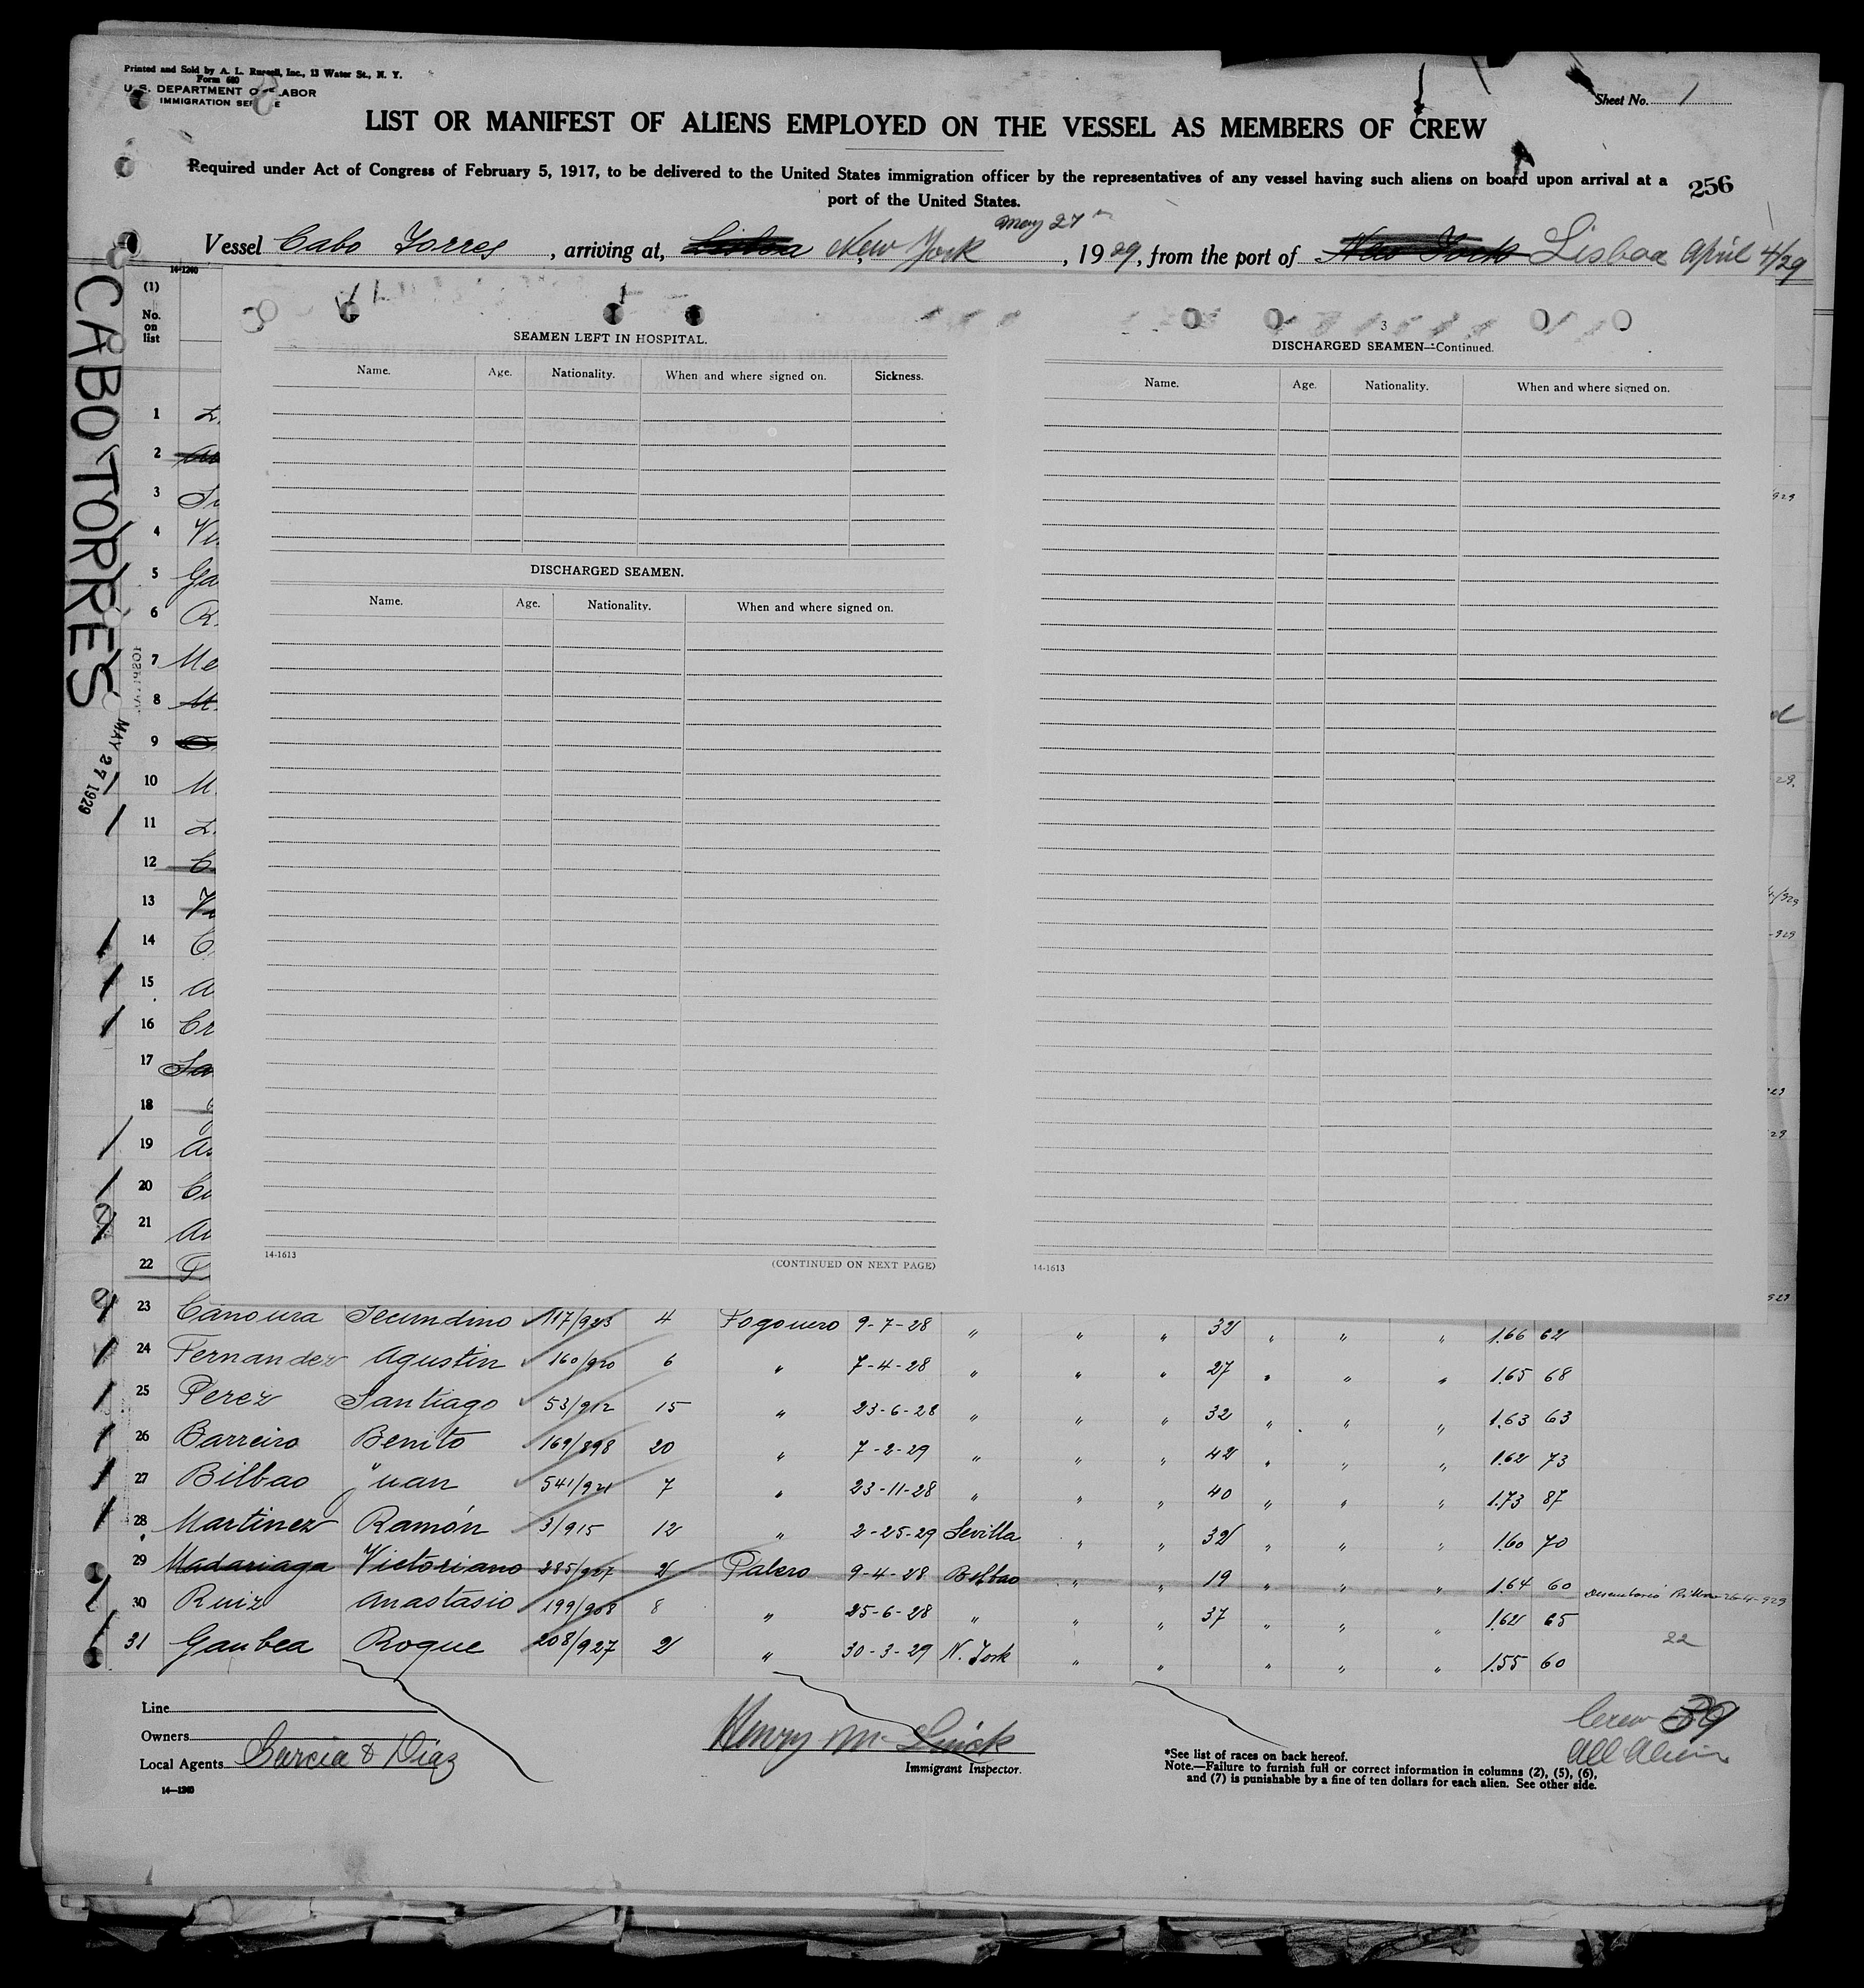 Printed and Sold by A. L. Russell, Inc., 13 Water St., N. Y.
Form 680
U. S. DEPARTMENT OF LABOR
IMMIGRATION SERVICE
Sheet No. 1
LIST OR MANIFEST OF ALIENS EMPLOYED ON THE VESSEL AS MEMBERS OF CREW
Required under Act of Congress of February 5, 1917, to be delivered to the United States immigration officer by the representatives of any vessel having such aliens on board upon arrival at a
port of the United States.
256
Vessel Cabo Torres, arriving at, Lisboa New York May 27th, 1929, from the port of New York Lisboa April 4/29
CABO TORRES
MAY 27 1929
14-1240
(1)
No. on list
SEAMEN LEFT IN HOSPITAL.
Name. Age. Nationality. When and where signed on. Sickness.
DISCHARGED SEAMEN.
Name. Age. Nationality. When and where signed on.
14-1613
(CONTINUED ON NEXT PAGE)
3
DISCHARGED SEAMEN—Continued.
Name. Age. Nationality. When and where signed on.
14-1613
1
2
3
4
5 Ga
6
7 Me
8
9
10
11
12
13
14
15
16 Cr
17
18
19 As
20
21
22
23 Canoura Secundino 117/923 4 Fogonero 9-7-28 " " " 32 " " " 1.66 62
24 Fernandez Agustin 160/920 6 " 7-4-28 " " " 27 " " " 1.65 68
25 Perez Santiago 53/912 15 " 23-6-28 " " " 32 " " " 1.63 63
26 Barreiro Benito 169/898 20 " 7-2-29 " " " 42 " " " 1.62 73
27 Bilbao Juan 541/921 7 " 23-11-28 " " " 40 " " " 1.73 87
28 Martinez Ramón 3/915 12 " 2-25-29 Sevilla " " 32 " " " 1.60 70
29 Madariaga Victoriano 285/927 2 Palero 9-4-28 Bilbao " " 19 " " " 1.64 60 Desembarcó Bilbao 26-4-929
30 Ruiz Anastasio 199/908 8 " 25-6-28 " " " 37 " " " 1.62 65
31 Gaubea Roque 208/927 2 " 30-3-29 N. York " " " " " 1.55 60
22
Line
Owners
Local Agents Garcia & Diaz
14-1240
Henry M.
Immigrant Inspector.
*See list of races on back hereof.
Note.—Failure to furnish full or correct information in columns (2), (5), (6),
and (7) is punishable by a fine of ten dollars for each alien. See other side.
Crew 39
All Alien